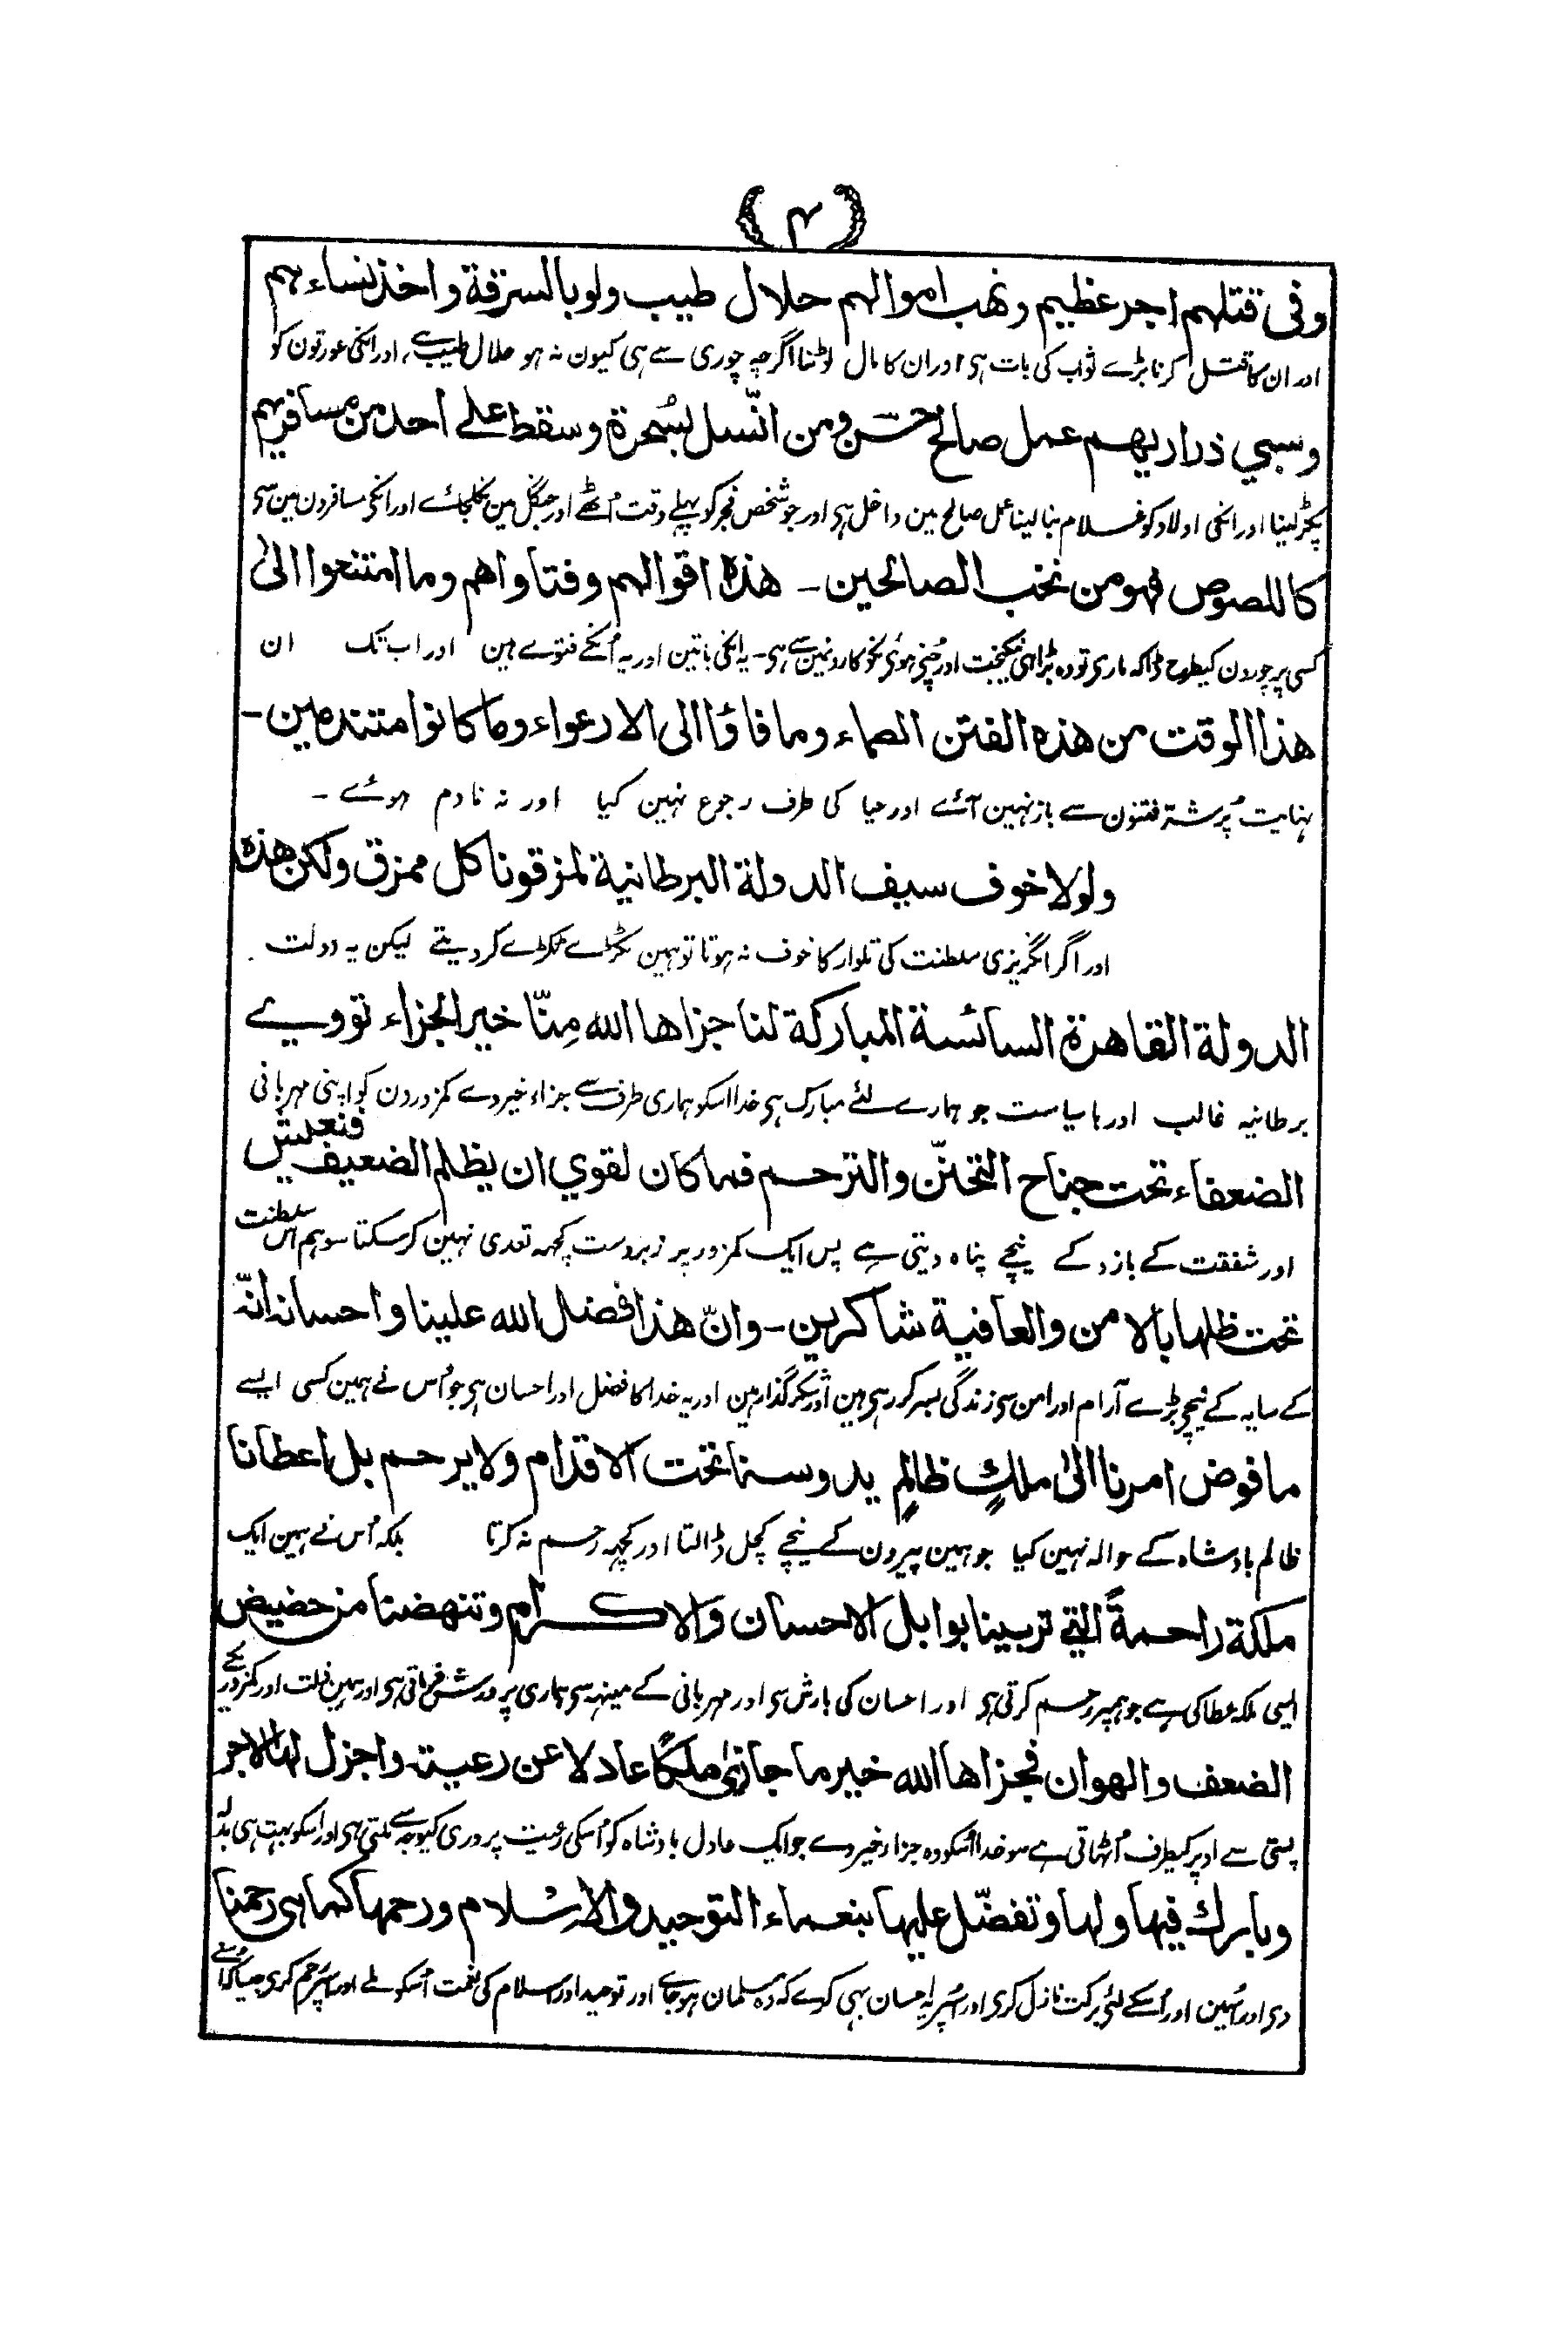 (۴)
وفی قتلہم اجر عظیم ونہب اموالہم حلال طیب ولو بالسرقة واخذ نساءہم
اور ان کا قتل کرنا بڑے ثواب کی بات ہی اور ان کا مال لوٹنا اگرچہ چوری سے ہی کیون نہ ہو حلال طیب ہے، اور انکی عورتون کو
وسبي ذراریهم عمل صالح حسن ومن انسّل بسُحرة وسقط علے احد من مسافریہم
پکڑ لینا اور انکی اولاد کو غلام بنا لینا عمل صالح مین داخل ہی اور جو شخص فجر کو پہلے وقت اُٹھے اور جنگل مین نکلجائے اور انکی مسافرون مین سی
کاللصوص فهو من نخب الصالحین - هذه اقوالہم وفتاواهم وما امتنعوا الیٰ
کسی پر چورون کیطرح ڈاکہ ماری تو وہ بڑا ہی نیکبخت اور چُنی ہوئی نکوکارونمین سے ہی - یہ انکی باتین اور یہ اُنکے فتوے ہین اور اب تک ان
هذا الوقت من هذه الفتن الصماء وما فاؤا الی الارعواء وما کانوا متندمین -
نہایت پُر شدّ فتنون سے باز نہین آئے اور حیا کی طرف رجوع نہین کیا اور نہ نادم ہوئے -
ولولا خوف سیف الدولة البرطانیة لمزقونا کل ممزق ولکن هذه
اور اگر انگریزی سلطنت کی تلوار کا خوف نہ ہوتا تو ہمین ٹکڑے ٹکڑے کر دیتے لیکن یہ دولت
الدولة القاهرة السائسة المبارکة لنا جزاها الله مِنّا خیر الجزاء تووي
برطانیہ غالب اور با سیاست جو ہمارے لئے مبارک ہی خدا اسکو ہماری طرف سے جزاء خیر دے کمزورون کو اپنی مہربانی
الضعفاء تحت جناح التحنّن والترحم فما کان لقوي ان یظلم الضعیف فنعیش
اور شفقت کے بازو کے نیچے پناہ دیتی ہے پس ایک کمزور پر زبردست کچھ تعدی نہین کر سکتا سو ہم اس سلطنت
تحت ظلها بالامن والعافیة شاکرین - وانّ هذا فضل الله علینا واحسانہ انّہ
کے سایہ کے نیچے بڑے آرام اور امن سی زندگی بسر کر رہی ہین اور شکر گذار ہین اور یہ خدا کا فضل اور احسان ہی جو اُس نے ہمین کسی ایسے
ما فوض امرنا الیٰ ملكٍ ظالمٍ یدوسنا تحت الاقدام ولا یرحم بل اعطانا
ظالم بادشاہ کے حوالہ نہین کیا جو ہمین پیرون کے نیچے کچل ڈالتا اور کچھ رحم نہ کرتا بلکہ اُس نے ہمین ایک
ملکة راحمةً التي تربینا بوابل الاحسان والاکرام وتنهضنا من حضیض
ایسی ملکہ عطا کی ہے جو ہمپر رحم کرتی ہی اور احسان کی بارش سی اور مہربانی کے مینہہ سی ہماری پرورش فرماتی ہی اور ہمین ذلت اور کمزوری کے
الضعف والهوان فجزاها الله خیر ما جازیٰ ملکًا عادلا عن رعیتہ واجزل لها الاجر
پستی سے اوپر کیطرف اُٹھاتی ہے سو خدا اُسکو وہ جزاء خیر دے جو ایک عادل بادشاہ کو اُسکی رعیت پروری کیوجہ سے ملتی ہی اور اسکو بہت ہی بدلہ
وبارك فیها ولها وتفضّل علیها بنعماء التوحید والاسلام ورحمها کما هی رحمتنا
دی اور اُسمین اور اُسکے لئی برکت نازل کری اور اُسپر یہ احسان بہی کرے کہ وہ مسلمان ہو جاے اور توحید اور اسلام کی نعمت اُسکو ملے اور اُسپر رحم کری جیسا کہ اُسنے